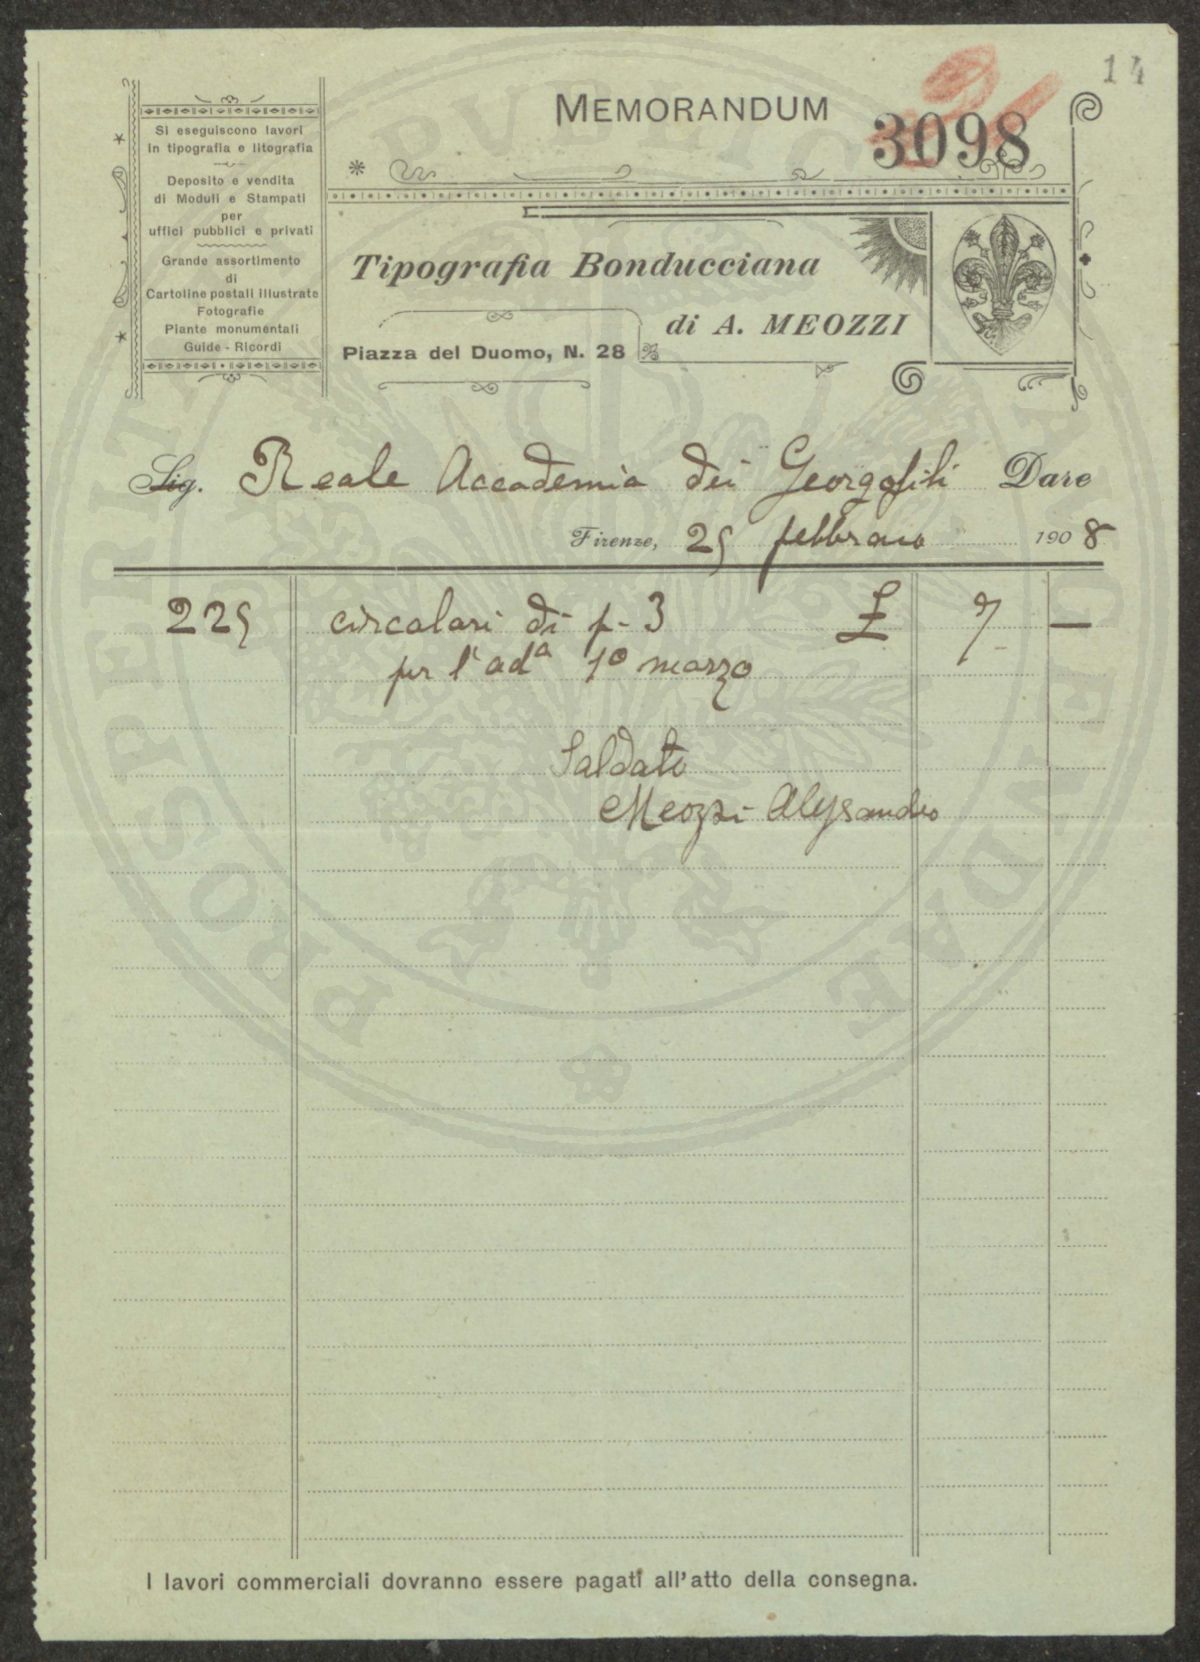 14
MEMORANDUM
3098
Si eseguiscono lavori
in tipografia e litografia
Deposito e vendita
di Moduli e Stampati
per
uffici pubblici e privati
Grande assortimento
di
Cartoline postali illustrate
Fotografie
Piante monumentali
Guide - Ricordi
Tipografia Bonducciana
di A. MEOZZI
Piazza del Duomo, N. 28
Sig. Reale Accademia dei Georgofili Dare
Firenze, 25 febbraio 1908
225 circolari di p. 3 £ 7 —
per l'ad.ª 1º marzo
Saldato
Meozzi Alessandro
I lavori commerciali dovranno essere pagati all'atto della consegna.
PROSPERITATI PUBLICAE AUGENDAE